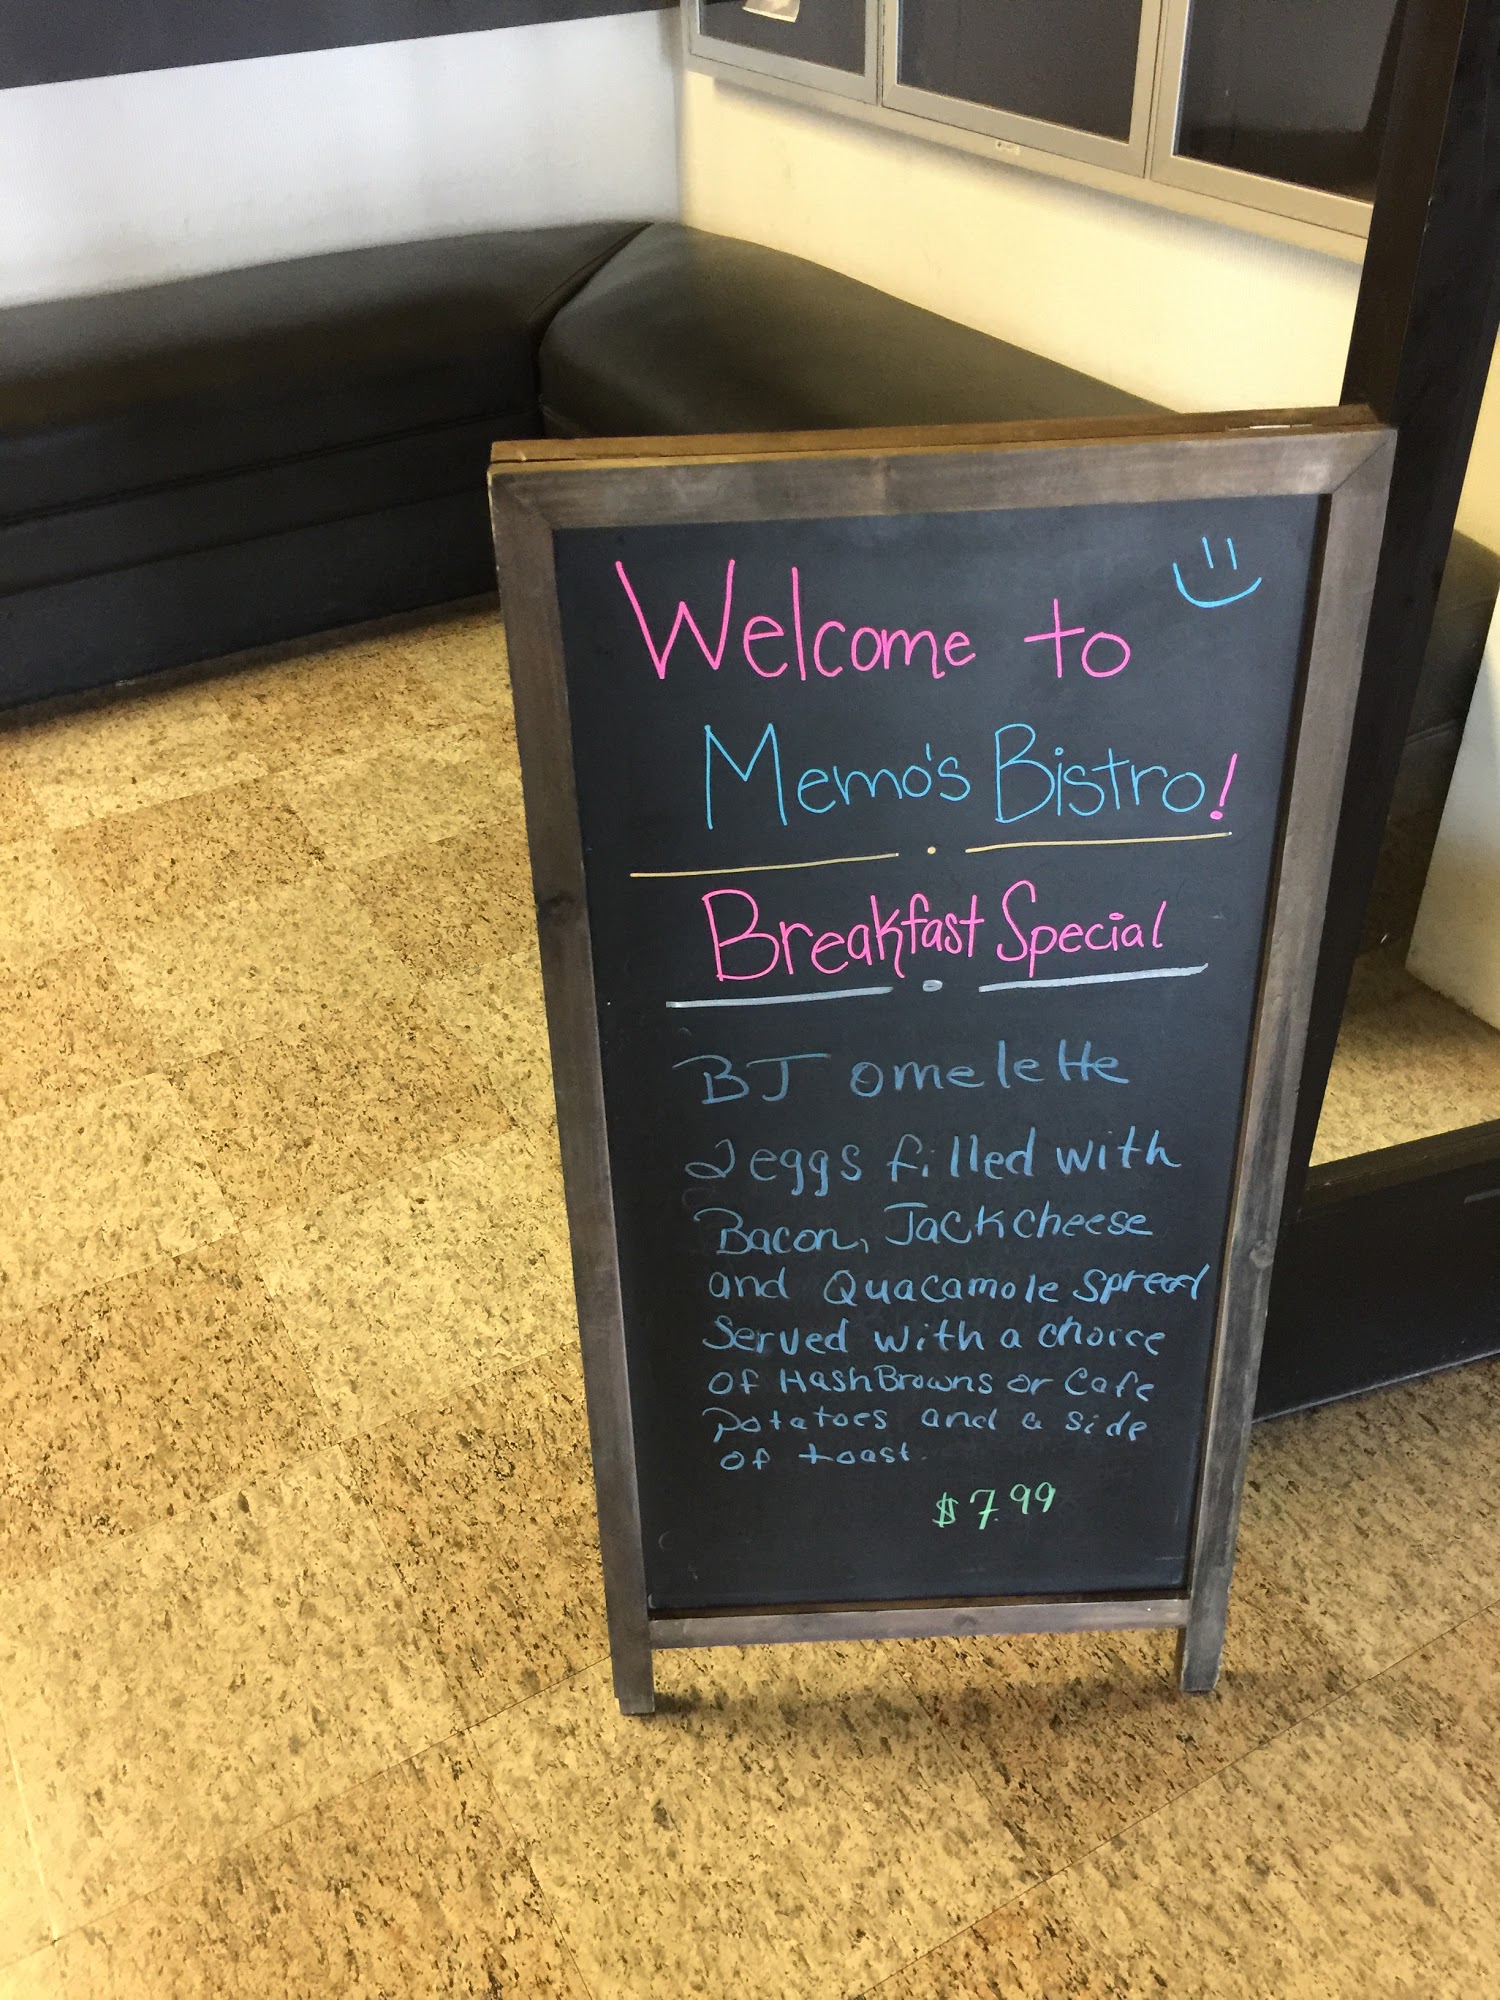 Welcome to
Memo's Bistro!
Breakfast Special
BJ omelette
2 eggs filled with
Bacon, Jack cheese
and Quacamole spread
Served with a choice
of HashBrowns or Cafe
potatoes and a side
of toast.
$7.99